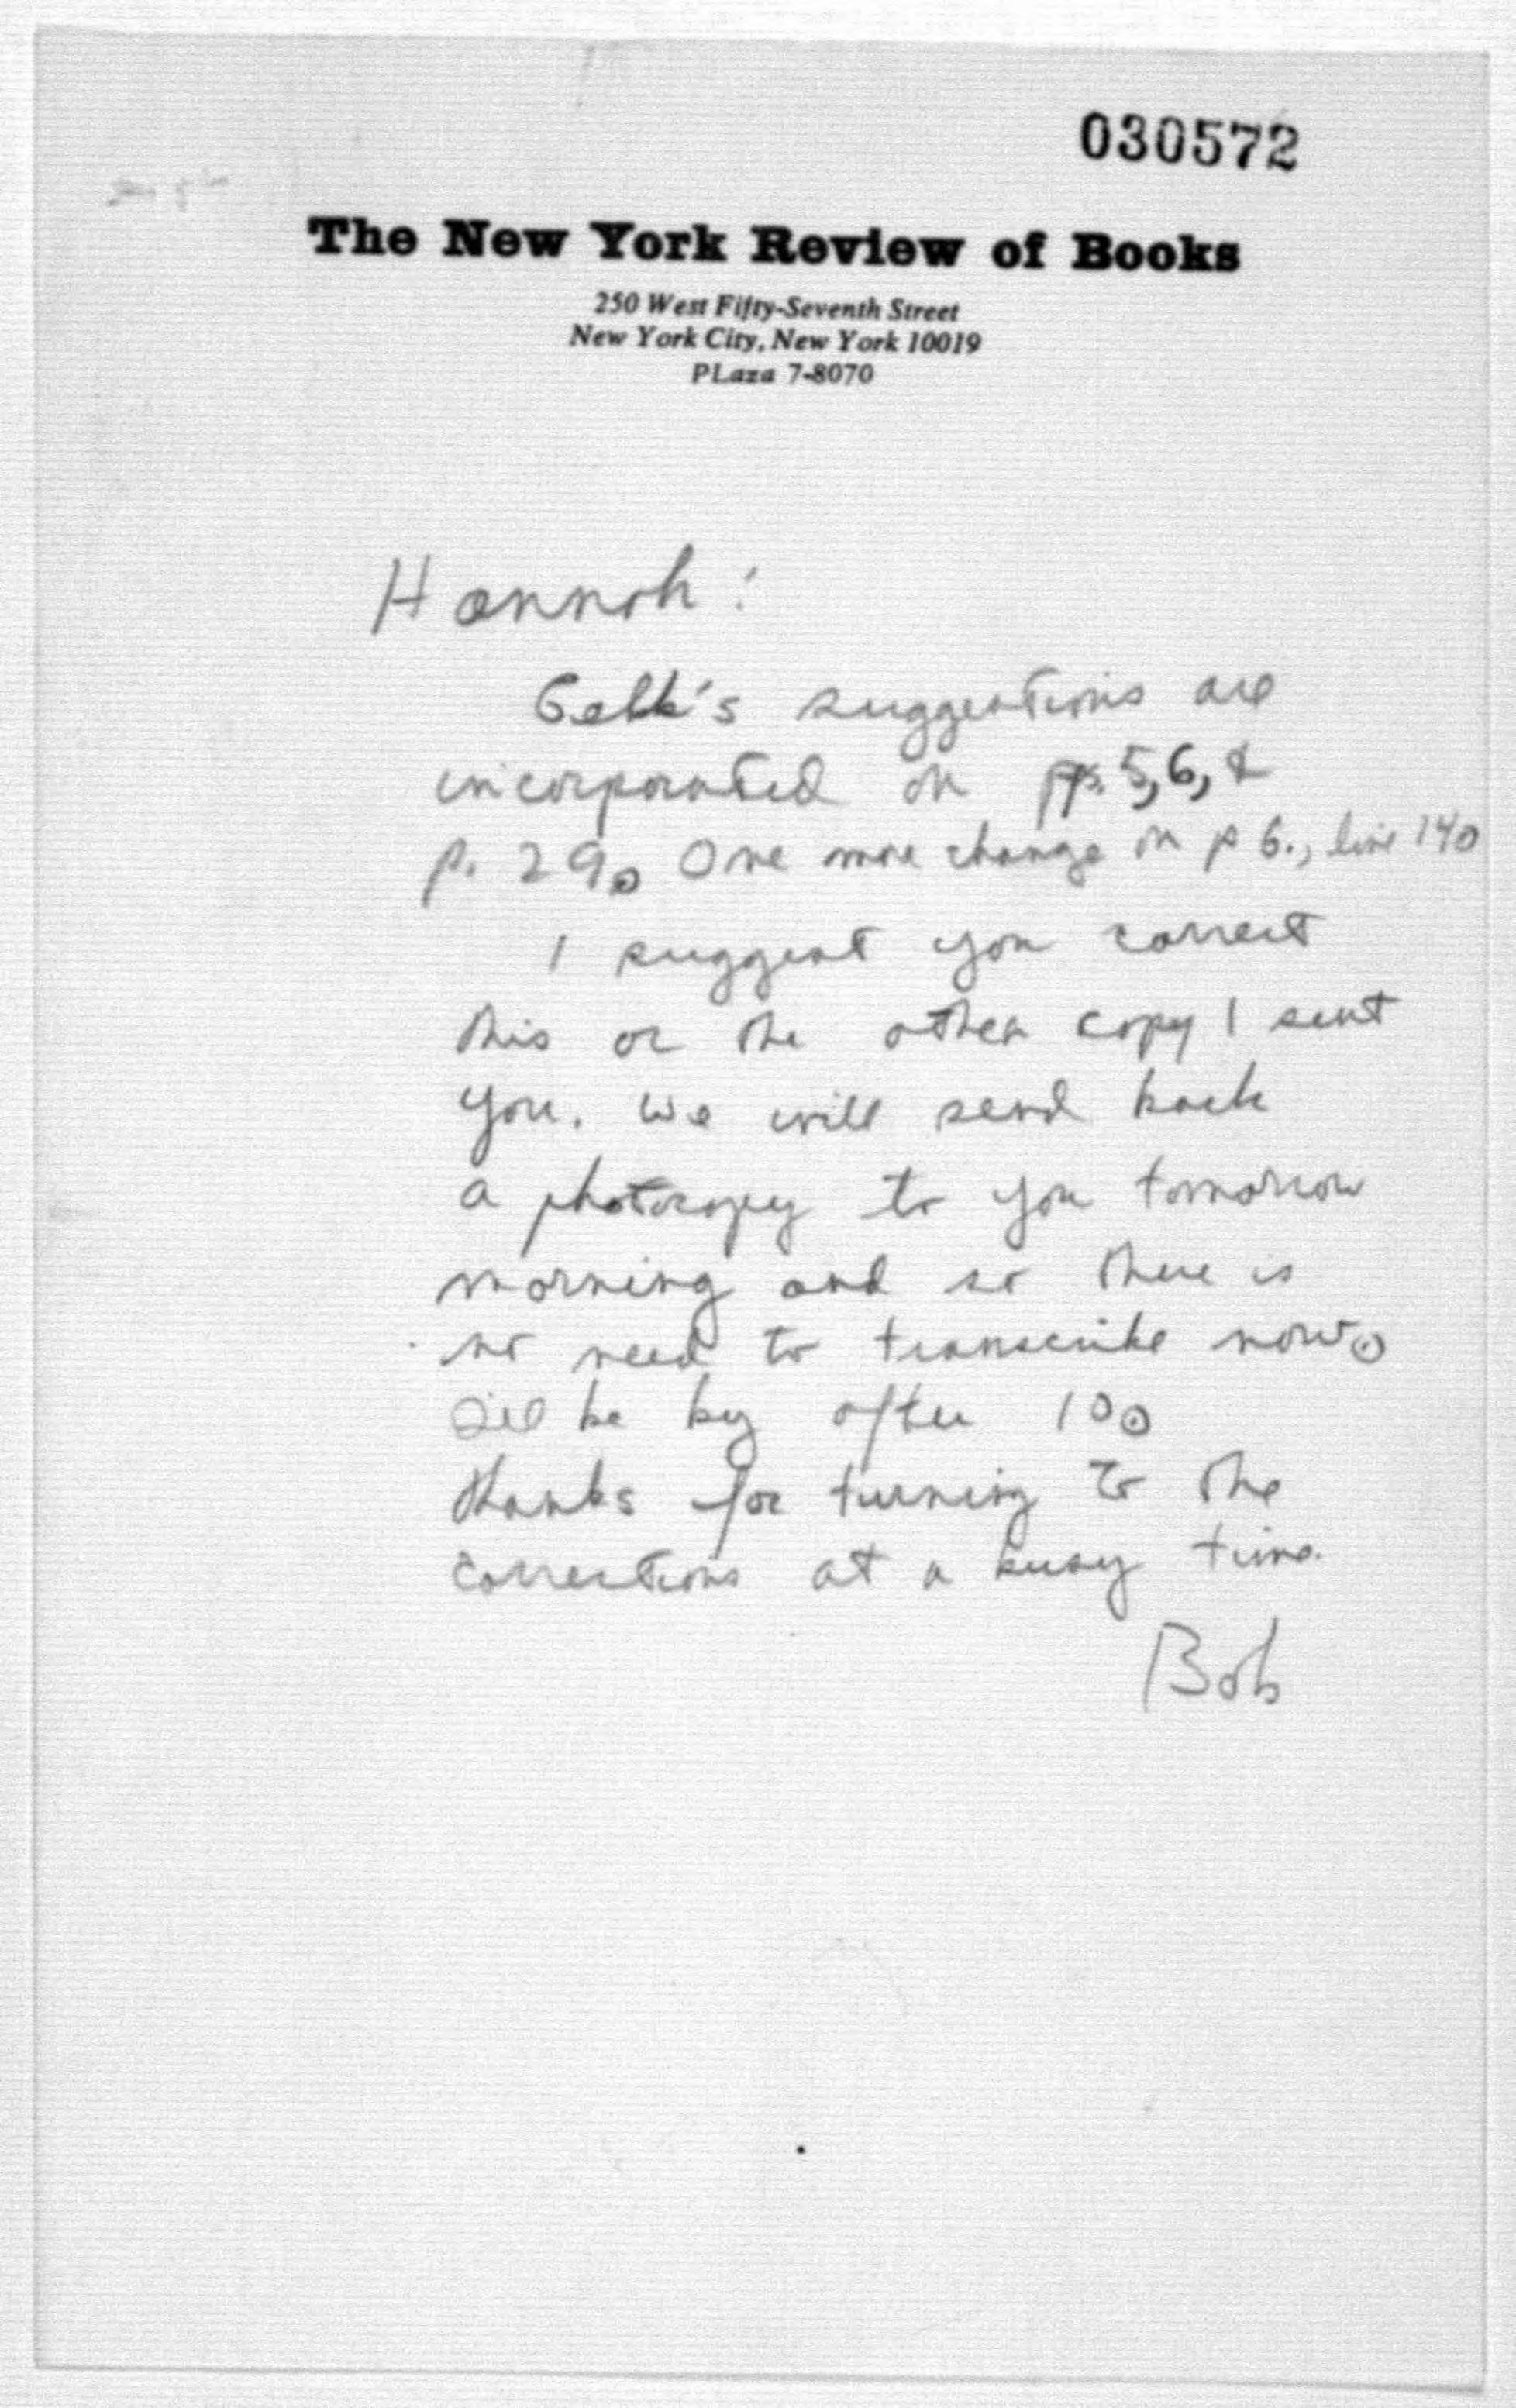 030572
The New York Review of Books
250 West Fifty-Seventh Street
New York City, New York 10019
PLaza 7-8070
Hannah:
suggestions are
incorporated on pps. 5, 6, &
p. 29. One more change on p 6., line 14.
I suggest you correct
this or the other copy I sent
you. We will send back
a photocopy to you tomorrow
morning and so there is
no need to transcribe now.
I'll be by after 10.
thanks for turning to the
corrections at a busy time.
Bob